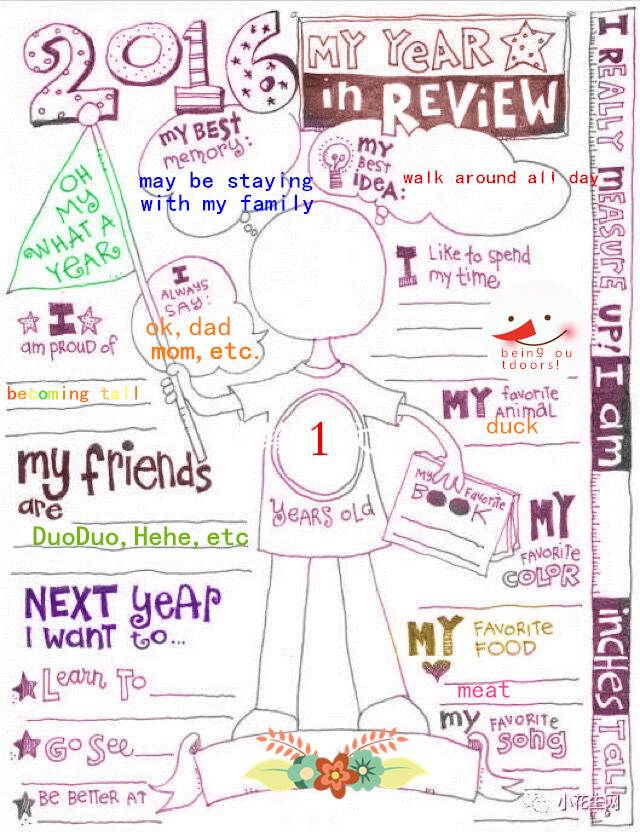 2016
MY YEAR
in REVIEW
I REALLY MEASURE UP! I am
inches TALL
my BEST
memory:
may be staying
with my family
my
BEST
iDEA:
walk around all day
OH
MY
WHAT A
YEAR
I
ALWAYS
SAY:
ok, dad
mom, etc.
I Like to spend
my time
being ou
tdoors!
I
am PROUD of
becoming tall
MY favorite
ANIMAL
duck
my friends
are
DuoDuo, Hehe, etc
1
YEARS OLD
My Favorite
BOOK
MY
FAVORITE
COLOR
NEXT YEAR
I want to...
Learn To
Go See
BE BETTER AT
MY FAVORITE
FOOD
meat
my FAVORITE
Song
小花生网